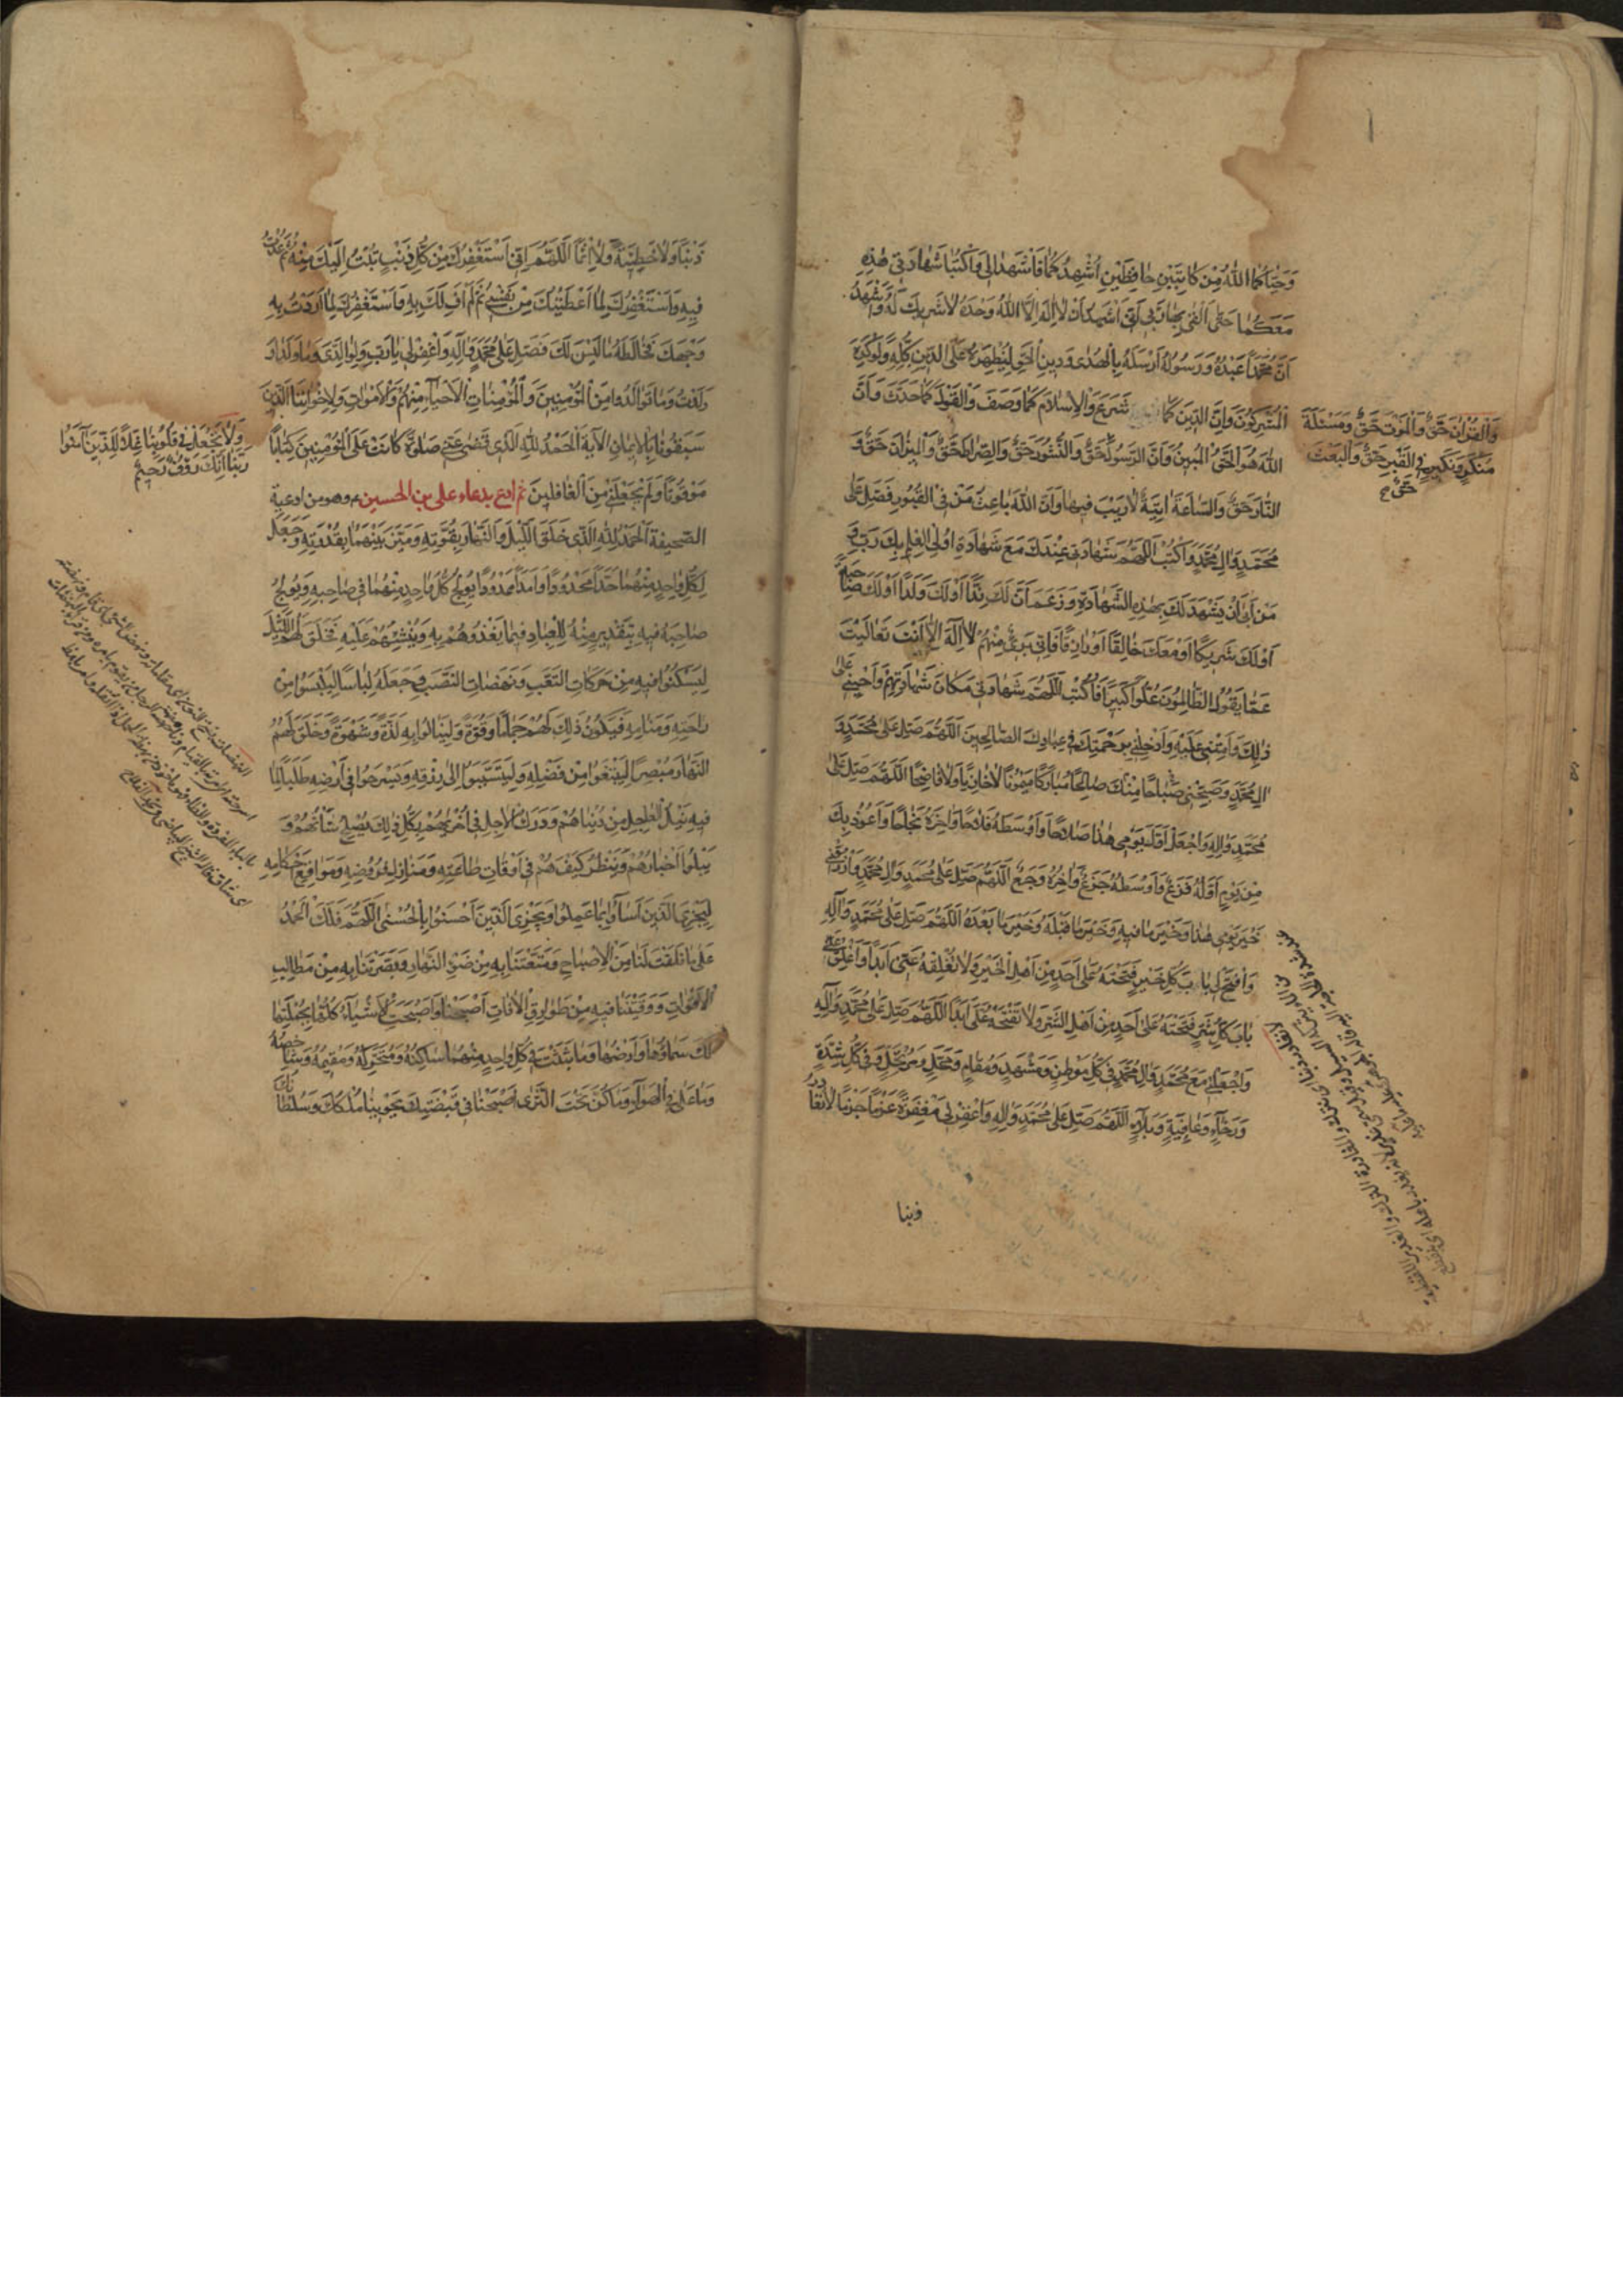 وَحَيَّاكُمَا اللّٰهُ مِنْ كَاتِبَيْنِ حَافِظَيْنِ اُشْهِدُكُمَا فَاشْهَدَا لِي وَاكْتُبَا شَهَادَتِي هٰذِهِ
مَعَكُمَا حَتّٰى اَلْقٰى بِهَا رَبِّي اَنِّي اَشْهَدُ اَنْ لَا اِلٰهَ اِلَّا اللّٰهُ وَحْدَهُ لَا شَرِيكَ لَهُ وَاَشْهَدُ
اَنَّ مُحَمَّدًا عَبْدُهُ وَرَسُولُهُ اَرْسَلَهُ بِالْهُدٰى وَدِينِ الْحَقِّ لِيُظْهِرَهُ عَلَى الدِّينِ كُلِّهِ وَلَوْ كَرِهَ
الْمُشْرِكُونَ وَاَنَّ الدِّينَ كَمَا شَرَعَ وَالْاِسْلَامَ كَمَا وَصَفَ وَالْقَوْلَ كَمَا حَدَّثَ وَاَنَّ
اللّٰهَ هُوَ الْحَقُّ الْمُبِينُ وَاَنَّ الرَّسُولَ حَقٌّ وَالنُّشُورَ حَقٌّ وَالصِّرَاطَ حَقٌّ وَالْمِيزَانَ حَقٌّ وَ
النَّارَ حَقٌّ وَالسَّاعَةَ اٰتِيَةٌ لَا رَيْبَ فِيهَا وَاَنَّ اللّٰهَ بَاعِثُ مَنْ فِي الْقُبُورِ فَصَلِّ عَلٰى
مُحَمَّدٍ وَاٰلِ مُحَمَّدٍ وَاكْتُبِ اللّٰهُمَّ شَهَادَتِي عِنْدَكَ مَعَ شَهَادَةِ اُولِي الْعِلْمِ بِكَ رَبِّ وَ
مَنْ اَبٰى اَنْ يَشْهَدَ لَكَ بِهٰذِهِ الشَّهَادَةِ وَزَعَمَ اَنَّ لَكَ نِدًّا اَوْ لَكَ وَلَدًا اَوْ لَكَ صَاحِبَةً
اَوْ لَكَ شَرِيكًا اَوْ مَعَكَ خَالِقًا اَوْ رَازِقًا فَاِنِّي بَرِيءٌ مِنْهُمْ لَا اِلٰهَ اِلَّا اَنْتَ تَعَالَيْتَ
عَمَّا يَقُولُ الظَّالِمُونَ عُلُوًّا كَبِيرًا فَاكْتُبِ اللّٰهُمَّ شَهَادَتِي مَكَانَ شَهَادَتِهِمْ وَاَحْيِنِي عَلٰى
ذٰلِكَ وَاَمِتْنِي عَلَيْهِ وَاَدْخِلْنِي بِرَحْمَتِكَ فِي عِبَادِكَ الصَّالِحِينَ اَللّٰهُمَّ صَلِّ عَلٰى مُحَمَّدٍ وَ
اٰلِ مُحَمَّدٍ وَصَبِّحْنِي صَبَاحًا مِنْكَ صَالِحًا مُبَارَكًا مَيْمُونًا لَا خَازِيًا وَلَا فَاضِحًا اَللّٰهُمَّ صَلِّ عَلٰى
مُحَمَّدٍ وَاٰلِهِ وَاجْعَلْ اَوَّلَ يَوْمِي هٰذَا صَلَاحًا وَاَوْسَطَهُ فَلَاحًا وَاٰخِرَهُ نَجَاحًا وَاَعُوذُ بِكَ
مِنْ يَوْمٍ اَوَّلُهُ فَزَعٌ وَاَوْسَطُهُ جَزَعٌ وَاٰخِرُهُ وَجَعٌ اَللّٰهُمَّ صَلِّ عَلٰى مُحَمَّدٍ وَاٰلِ مُحَمَّدٍ وَارْزُقْنِي
خَيْرَ يَوْمِي هٰذَا وَخَيْرَ مَا فِيهِ وَخَيْرَ مَا قَبْلَهُ وَخَيْرَ مَا بَعْدَهُ اَللّٰهُمَّ صَلِّ عَلٰى مُحَمَّدٍ وَاٰلِهِ
وَافْتَحْ لِي بَابَ كُلِّ خَيْرٍ فَتَحْتَهُ عَلٰى اَحَدٍ مِنْ اَهْلِ الْخَيْرِ وَلَا تُغْلِقْهُ عَنِّي اَبَدًا وَاَغْلِقْ عَنِّي
بَابَ كُلِّ شَرٍّ فَتَحْتَهُ عَلٰى اَحَدٍ مِنْ اَهْلِ الشَّرِّ وَلَا تَفْتَحْهُ عَلَيَّ اَبَدًا اَللّٰهُمَّ صَلِّ عَلٰى مُحَمَّدٍ وَاٰلِهِ
وَاجْعَلْنِي مَعَ مُحَمَّدٍ وَاٰلِ مُحَمَّدٍ فِي كُلِّ مَوْطِنٍ وَمَشْهَدٍ وَمَقَامٍ وَمَحَلٍّ وَمُرْتَحَلٍ وَفِي كُلِّ شِدَّةٍ
وَرَخَاءٍ وَعَافِيَةٍ وَبَلَاءٍ اَللّٰهُمَّ صَلِّ عَلٰى مُحَمَّدٍ وَاٰلِهِ وَاغْفِرْ لِي مَغْفِرَةً عَزْمًا جَزْمًا لَا تُغَادِرُ
ذنبا
وَالْقُرْاٰنَ حَقٌّ وَالْمَوْتَ حَقٌّ وَمَسْئَلَةَ
مُنْكَرٍ وَنَكِيرٍ فِي الْقَبْرِ حَقٌّ وَالْبَعْثَ
حَقٌّ
ذَنْبًا وَلَا خَطِيئَةً وَلَا اِثْمًا اَللّٰهُمَّ اِنِّي اَسْتَغْفِرُكَ مِنْ كُلِّ ذَنْبٍ تُبْتُ اِلَيْكَ مِنْهُ ثُمَّ عُدْتُ
فِيهِ وَاَسْتَغْفِرُكَ لِمَا اَعْطَيْتُكَ مِنْ نَفْسِي ثُمَّ لَمْ اَفِ لَكَ بِهِ وَاَسْتَغْفِرُكَ لِمَا اَرَدْتُ بِهِ
وَجْهَكَ فَخَالَطَهُ مَا لَيْسَ لَكَ فَصَلِّ عَلٰى مُحَمَّدٍ وَاٰلِهِ وَاغْفِرْ لِي يَا رَبِّ وَلِوَالِدَيَّ وَمَا وَلَدَا وَ
وَلَدْتُ وَمَا تَوَالَدُوا مِنَ الْمُؤْمِنِينَ وَالْمُؤْمِنَاتِ الْاَحْيَاءِ مِنْهُمْ وَالْاَمْوَاتِ وَلِاِخْوَانِنَا الَّذِينَ
سَبَقُونَا بِالْاِيمَانِ الآية اَلْحَمْدُ لِلّٰهِ الَّذِي قَضٰى عَنِّي صَلٰوةً كَانَتْ عَلَى الْمُؤْمِنِينَ كِتَابًا
مَوْقُوتًا وَلَمْ يَجْعَلْنِي مِنَ الْغَافِلِينَ ثم ادع بدعاء علي بن الحسين وهو من ادعية
الصحيفة اَلْحَمْدُ لِلّٰهِ الَّذِي خَلَقَ اللَّيْلَ وَالنَّهَارَ بِقُوَّتِهِ وَمَيَّزَ بَيْنَهُمَا بِقُدْرَتِهِ وَجَعَلَ
لِكُلِّ وَاحِدٍ مِنْهُمَا حَدًّا مَحْدُودًا وَاَمَدًا مَمْدُودًا يُولِجُ كُلَّ وَاحِدٍ مِنْهُمَا فِي صَاحِبِهِ وَيُولِجُ
صَاحِبَهُ فِيهِ بِتَقْدِيرٍ مِنْهُ لِلْعِبَادِ فِيمَا يَغْذُوهُمْ بِهِ وَيُنْشِئُهُمْ عَلَيْهِ فَخَلَقَ لَهُمُ اللَّيْلَ
لِيَسْكُنُوا فِيهِ مِنْ حَرَكَاتِ التَّعَبِ وَنَهَضَاتِ النَّصَبِ وَجَعَلَهُ لِبَاسًا لِيَلْبَسُوا مِنْ
رَاحَتِهِ وَمَنَامِهِ فَيَكُونُ ذٰلِكَ لَهُمْ جَمَامًا وَقُوَّةً وَلِيَنَالُوا بِهِ لَذَّةً وَشَهْوَةً وَخَلَقَ لَهُمُ
النَّهَارَ مُبْصِرًا لِيَبْتَغُوا مِنْ فَضْلِهِ وَلِيَتَسَبَّبُوا اِلٰى رِزْقِهِ وَيَسْرَحُوا فِي اَرْضِهِ طَلَبًا لِمَا
فِيهِ نَيْلُ الْعَاجِلِ مِنْ دُنْيَاهُمْ وَدَرَكُ الْاٰجِلِ فِي اُخْرٰيهُمْ بِكُلِّ ذٰلِكَ يُصْلِحُ شَاْنَهُمْ وَ
يَبْلُوا اَخْبَارَهُمْ وَيَنْظُرُ كَيْفَ هُمْ فِي اَوْقَاتِ طَاعَتِهِ وَمَنَازِلِ فُرُوضِهِ وَمَوَاقِعِ اَحْكَامِهِ
لِيَجْزِيَ الَّذِينَ اَسَاؤُا بِمَا عَمِلُوا وَيَجْزِيَ الَّذِينَ اَحْسَنُوا بِالْحُسْنٰى اَللّٰهُمَّ فَلَكَ الْحَمْدُ
عَلٰى مَا فَلَقْتَ لَنَا مِنَ الْاِصْبَاحِ وَمَتَّعْتَنَا بِهِ مِنْ ضَوْءِ النَّهَارِ وَبَصَّرْتَنَا بِهِ مِنْ مَطَالِبِ
الْاَقْوَاتِ وَوَقَيْتَنَا فِيهِ مِنْ طَوَارِقِ الْاٰفَاتِ اَصْبَحْنَا وَاَصْبَحَتِ الْاَشْيَاءُ كُلُّهَا بِجُمْلَتِهَا
لَكَ سَمَاؤُهَا وَاَرْضُهَا وَمَا بَثَثْتَ فِي كُلِّ وَاحِدٍ مِنْهُمَا سَاكِنُهُ وَمُتَحَرِّكُهُ وَمُقِيمُهُ وَشَاخِصُهُ
وَمَا عَلَا فِي الْهَوَاءِ وَمَا كَنَّ تَحْتَ الثَّرٰى اَصْبَحْنَا فِي قَبْضَتِكَ يَحْوِينَا مُلْكُكَ وَسُلْطَانُكَ
وَلَا تَجْعَلْ فِي قُلُوبِنَا غِلًّا لِلَّذِينَ اٰمَنُوا
رَبَّنَا اِنَّكَ رَؤُفٌ رَحِيمٌ